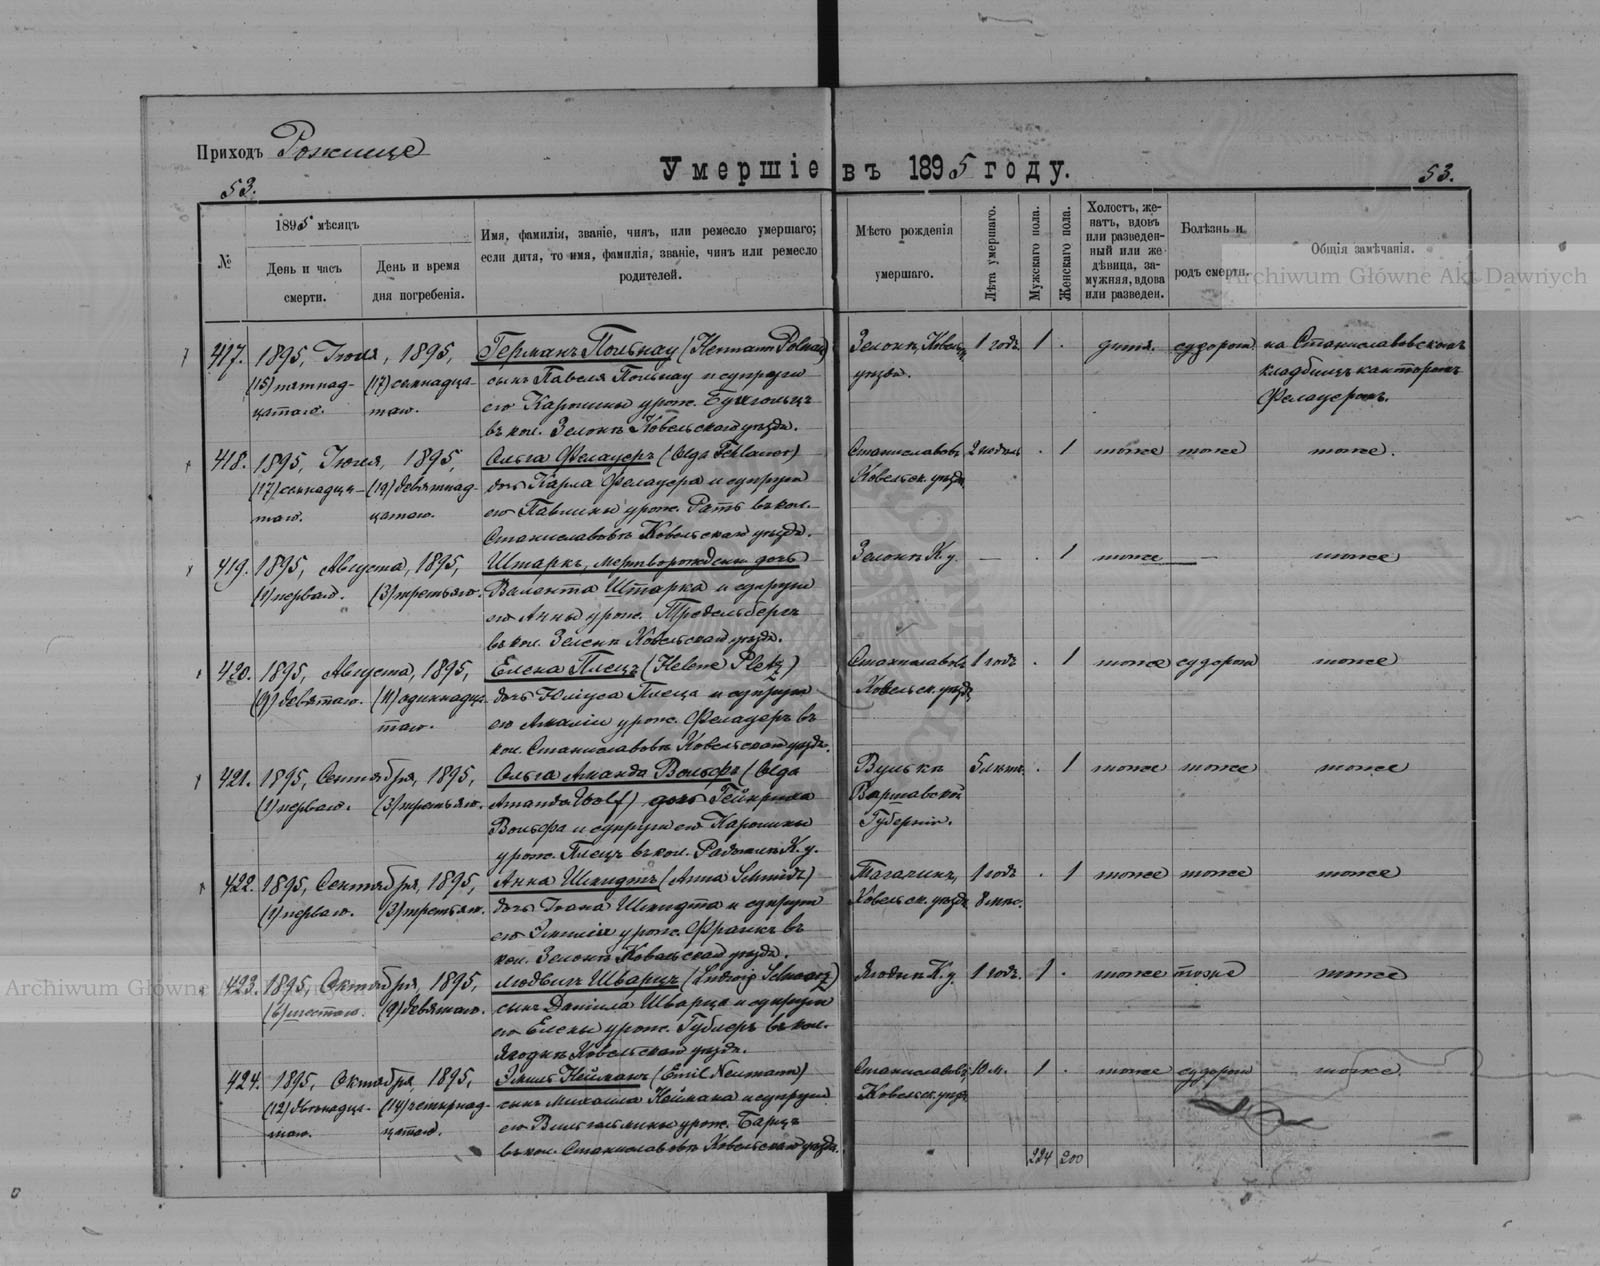 Приходъ Рожище
Умершіе въ 1895 году.
53.
53.
№
1895 мѣсяцъ
День и часъ
смерти.
День и время
дня погребенія.
Имя, фамилія, званіе, чинъ, или ремесло умершаго;
если дитя, то имя, фамилія, званіе, чинъ или ремесло
родителей.
Мѣсто рожденія
умершаго.
Лѣта умершаго.
Мужскаго пола.
Женскаго пола.
Холостъ, же-
натъ, вдовъ
или разведен-
ный или же
дѣвица, за-
мужняя, вдова
или разведен.
Болѣзнь и
родъ смерти.
Общія замѣчанія.
Archiwum Główne Akt Dawnych
417. 1895, Іюля, 1895, Германъ Польнау (Hermann Polnau) Зелонка, Ковельск. 1 годъ 1 . дитя. судороги на Станиславовскомъ
(15) пятнад- (17) семнадца- сынъ Павла Польнау и супруги уѣзда. кладбищѣ канторомъ
цатаго. таго. его Каролины урожд. Бухгольцъ Феллауеромъ.
въ кол. Зелонкѣ Ковельскаго уѣзда.
418. 1895, Іюля, 1895, Ольга Фелауеръ (Olga Fehlauer) Станиславовъ 2 недѣли . 1 тоже тоже тоже.
(17) семнадца- (19) девятнад- дочь Карла Фелауера и супруги Ковельск. уѣзда
таго. цатаго. его Павлины урож. Ратъ въ кол.
Станиславовкѣ Ковельскаго уѣзда.
419. 1895, Августа, 1895, Штаркъ, мертворожденн. дочь Зелонка К. у. — . 1 тоже — тоже
(1) перваго. (3) третьяго. Валента Штарка и супруги
его Анны урож. Тредельбергъ
въ кол. Зелонкѣ Ковельскаго уѣзда.
420. 1895, Августа, 1895, Елена Плецъ (Helene Pletz) Станиславовъ 1 годъ . 1 тоже судороги тоже
(9) девятаго. (11) одиннадца- дочь Юліуса Плеца и супруги Ковельск. уѣзда
таго. его Амаліи урож. Фелауеръ въ
кол. Станиславовкѣ Ковельскаго уѣзда.
421. 1895, Сентября, 1895, Ольга Аманда Вольфъ (Olga Вулька 5 лѣтъ. . 1 тоже тоже тоже
(1) перваго. (3) третьяго. Amanda Wolf) дочь Гейнриха Варшавской
Вольфа и супруги его Каролины Губерніи.
урож. Плецъ въ кол. К. у.
422. 1895, Сентября, 1895, Анна Шмидтъ (Anna Schmidt) 1 годъ . 1 тоже тоже тоже
(1) перваго. (3) третьяго. дочь Ивана Шмидта и супруги Ковельск. уѣзда 8 мѣс.
его Эмиліи урож. Франкъ въ
кол. Зелонкѣ Ковельскаго уѣзда.
423. 1895, Октября, 1895, Людвигъ Шварцъ (Ludwig Schwarz) Ягодка К. у. 1 годъ. 1 . тоже тоже тоже
(6) шестаго. (9) девятаго. сынъ Даніила Шварца и супруги
его Елены урож. Гублеръ въ кол.
Ягодкѣ Ковельскаго уѣзда.
424. 1895, Октября, 1895, Эмиль Нейманъ (Emil Neumann) Станиславовъ, 10 м. 1 . тоже судороги тоже
(12) двѣнадца- (14) четырнад- сынъ Михаила Неймана и супруги Ковельск. уѣзда
таго. цатаго. его Вильгельмины урож. Барцъ
въ кол. Станиславовкѣ Ковельскаго уѣзда.
224 200
Archiwum Główne